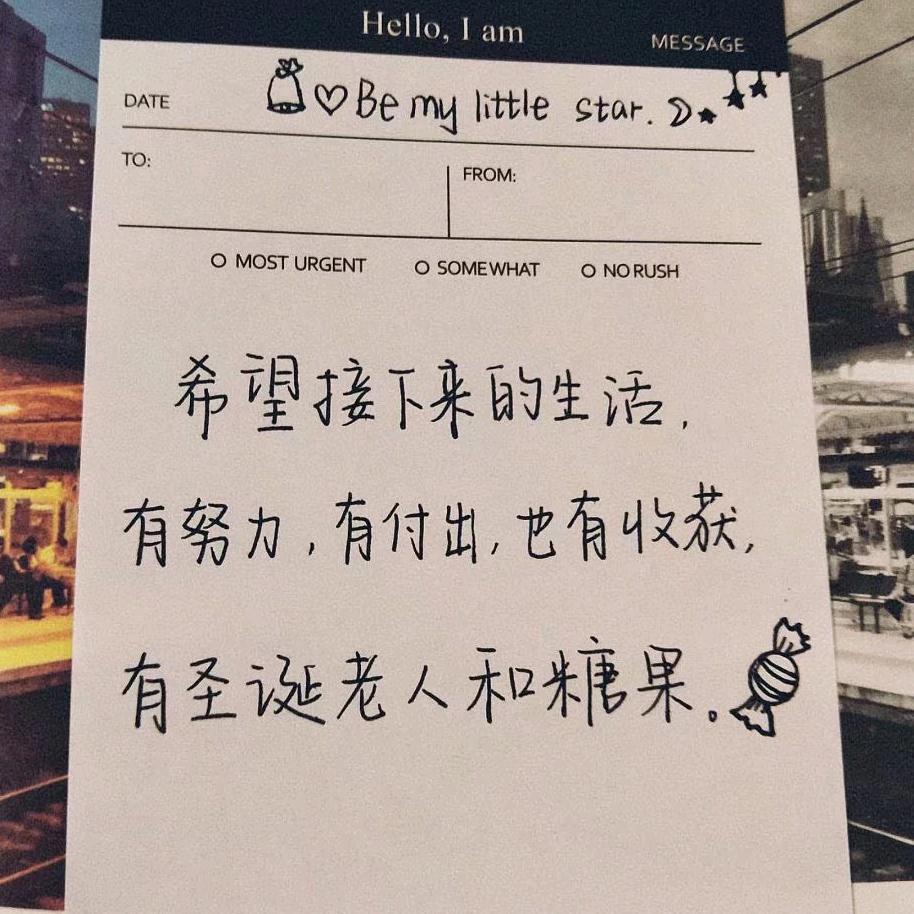 Hello, I am
MESSAGE
DATE
Be my little star.
TO:
FROM:
MOST URGENT
SOMEWHAT
NO RUSH
希望接下来的生活,
有努力,有付出,也有收获,
有圣诞老人和糖果。